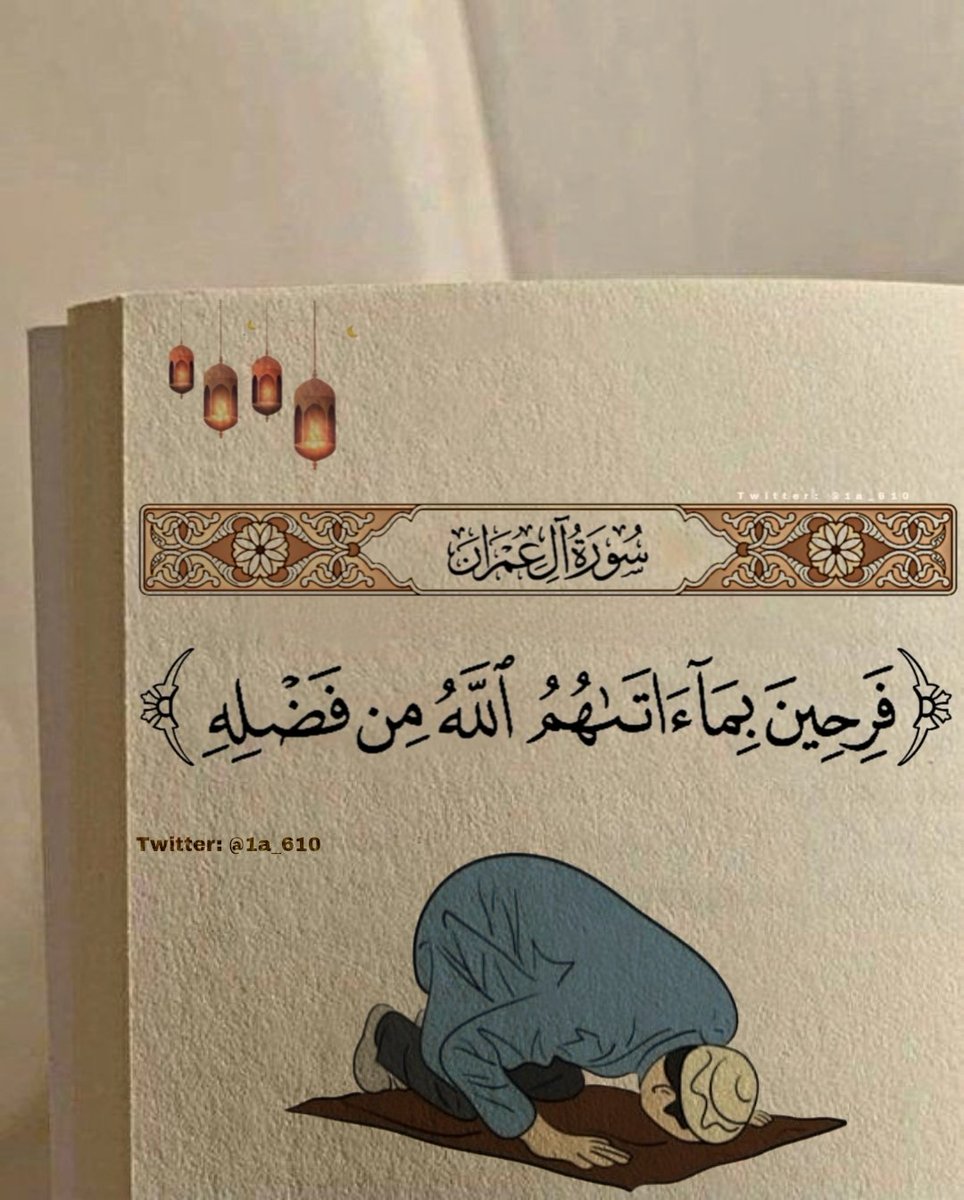 Twitter: @1a_610
سُورَةُ آلِ عِمْرَان
﴿فَرِحِينَ بِمَآ ءَاتَىٰهُمُ ٱللَّهُ مِن فَضْلِهِ﴾
Twitter: @1a_610